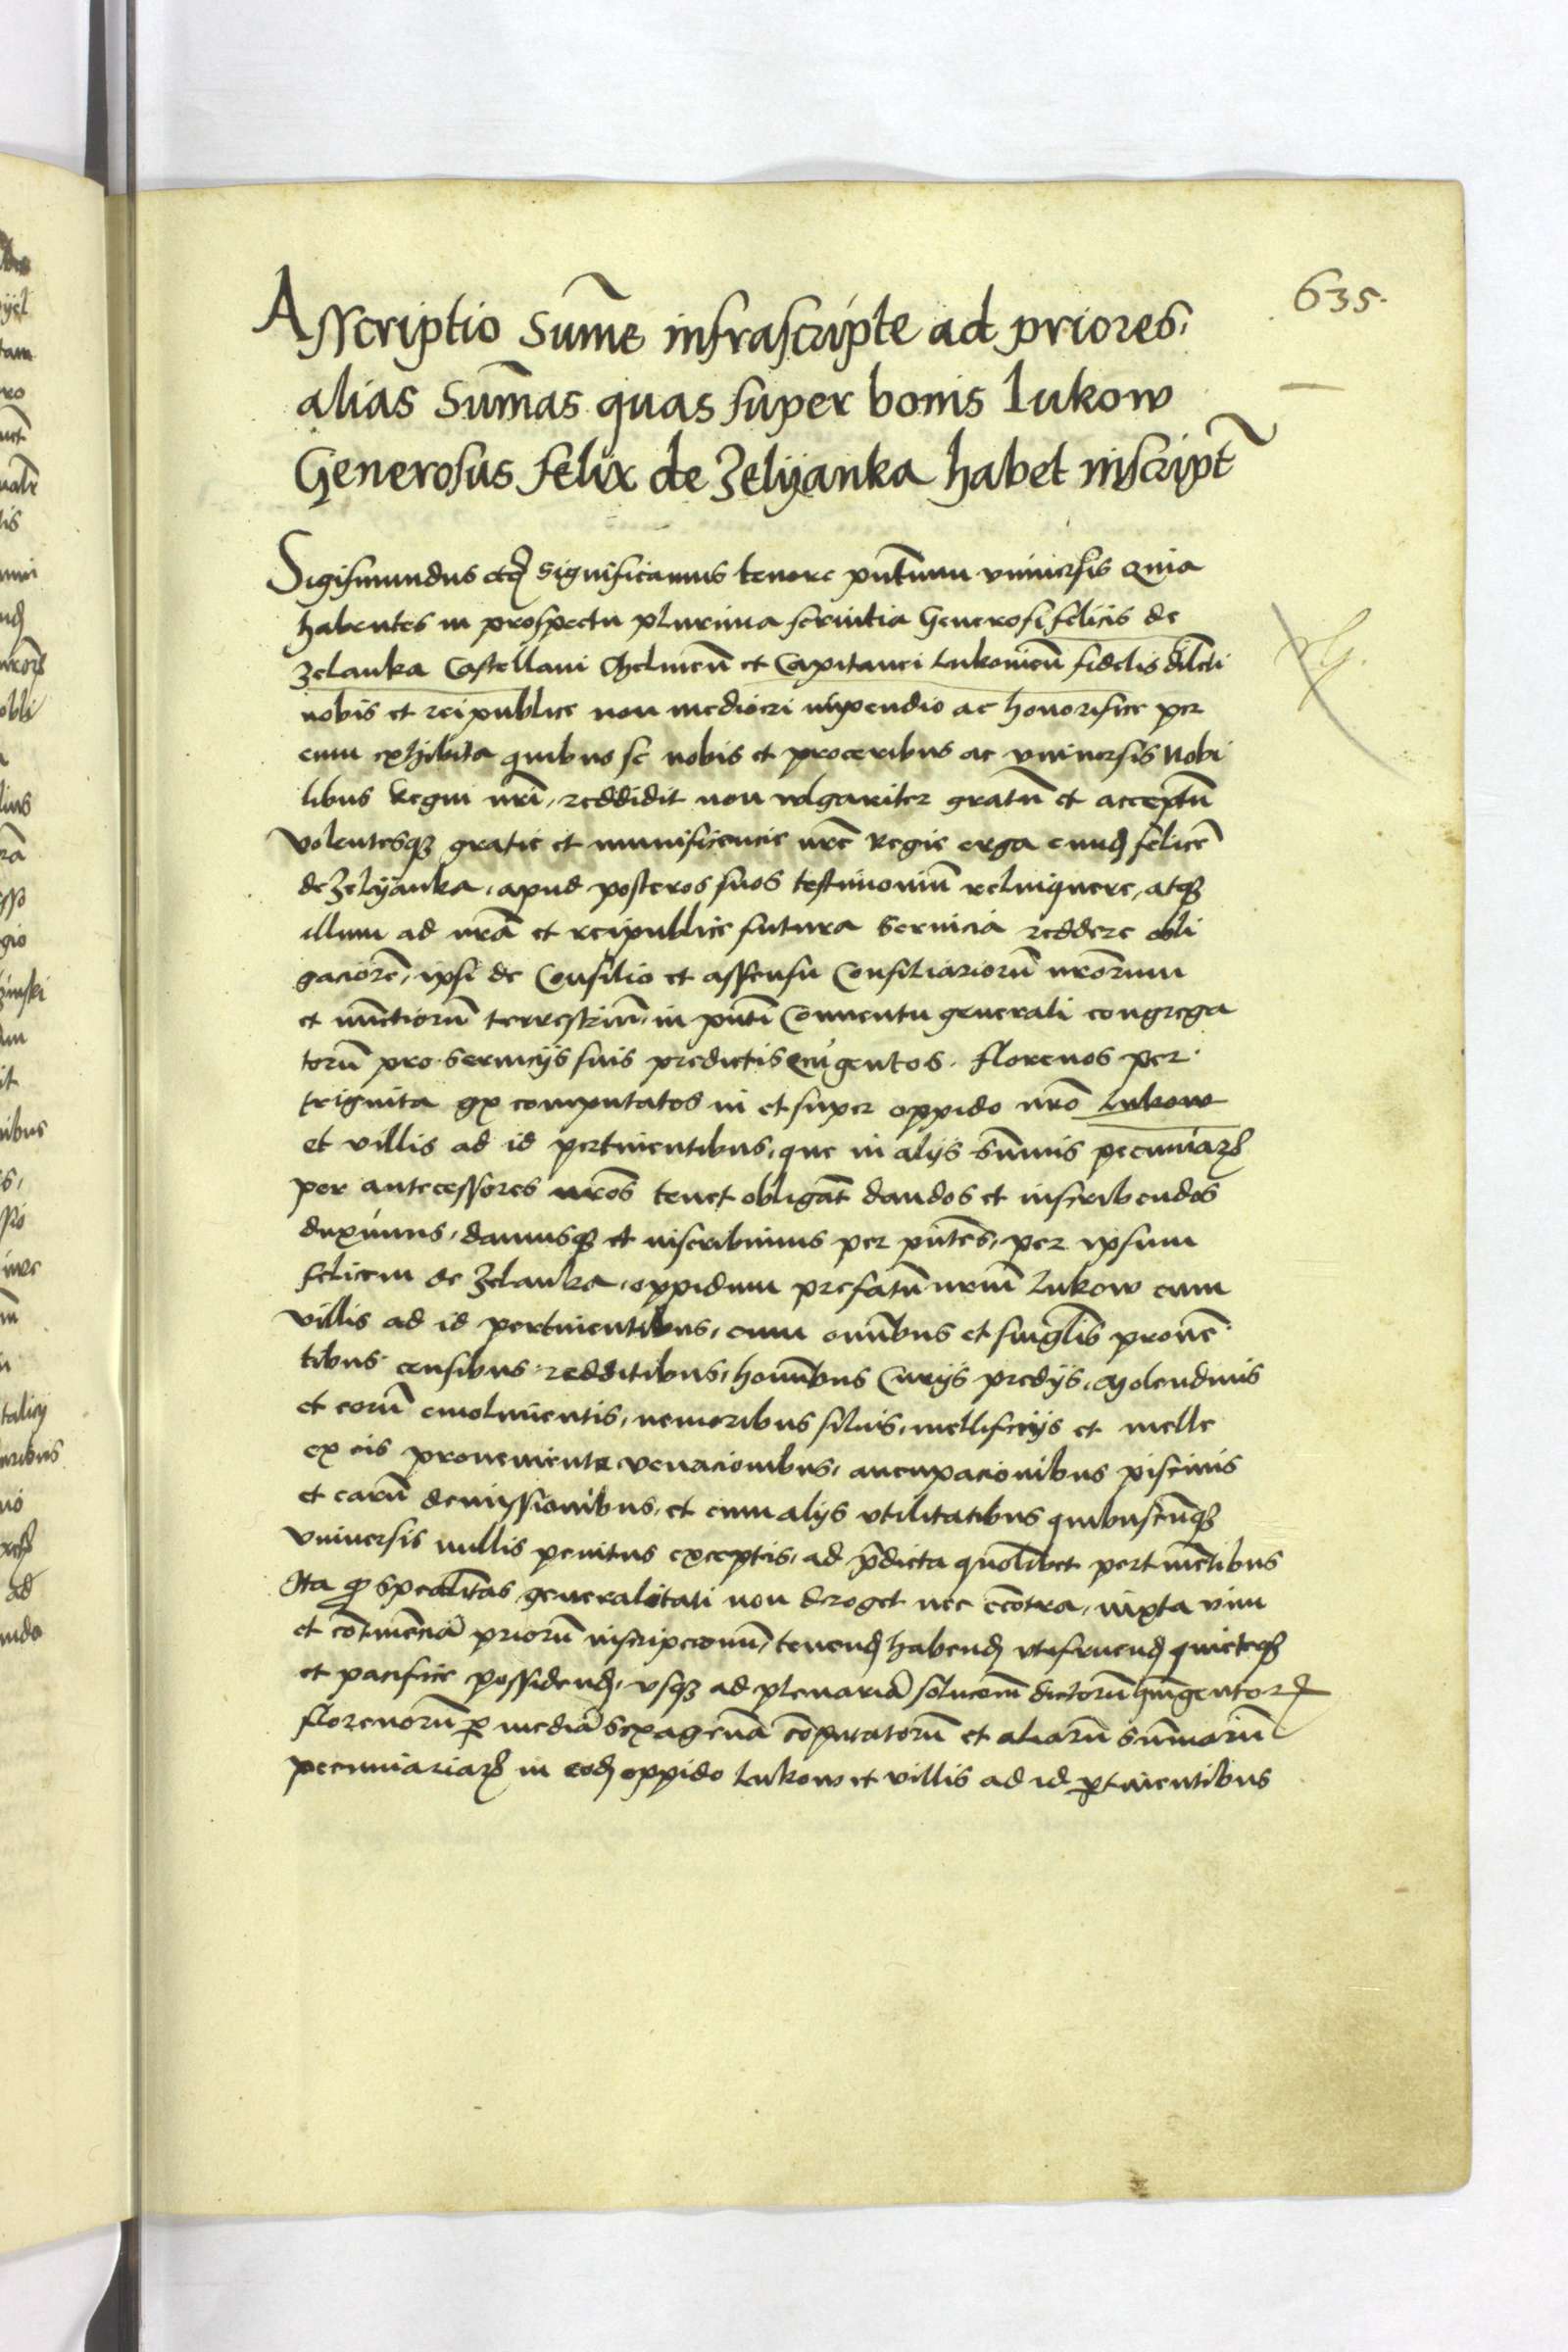 635.
Asscriptio Sum̄e infrascripte ad priores,
alias Sum̄as quas super bonis Lukow
Generosus felix de Zelyanka habet inscript̃
Sigismundus etc̄ Significamus tenore pn̄tium vniuersis Quia
habentes in prospectu plurima seruitia Generosi felicis de
Zelanka Castellani Chelmen̄ et Capitanei Lukouien̄ fidelis dilecti
nobis et reipublice non mediocri impendio ac honorifice per
eum exhibita quibus se nobis et proceribus ac vniuersis Nobi
libus Regni nr̄i, reddidit non wlgariter gratū et acceptū
volentesqȝ gratie et munificencie nr̄e Regie erga eundꝫ felicē
de Zelyanka, apud posteros suos testimoniū relinquere, atqȝ
illum ad nr̄ā et reipublice futura Seruicia reddere obli
gaciorē, ipsi de Consilio et assensu Consiliariorū nr̄orum
et nūctiorū terrestriū, in pn̄ti Conuentu generali congrega
torū pro Seruicijs suis predictis Quīgentos florenos per
triginta gr̄ computatos in et super oppido nr̄o Lukow
et villis ad id pertinentibus, que in alijs Sum̄is pecuniarꝝ
per antecessores nr̄os tenet obligāt dandos et inscribendos
duximus, damusqȝ et inscribimus per pn̄tes, per ipsum
felicem de Zelanka, oppidum prefatū nr̄um Lukow cum
villis ad id pertinentibus, cum om̄ibus et singlis prouē
tibus censibus redditibus, honībus Curijs predijs, Molendinis
et eorū emolumentis, nemoribus siluis, mellificijs et melle
ex eis proueniente venacionibus, aucupacionibus piscinis
et earū demissionibus, et cum alijs vtilitatibus quibuscūqȝ
vniuersis nullis penitus exceptis, ad p̄dicta quolibet pertinētibus
Ita ꝙ specialitas generalitati non droget nec ecōtra, iuxta vim
et cōtinēciā priorū inscripcionū, tenendꝫ habendꝫ vtifruendꝫ quieteqȝ
et pacifice possidendꝫ, vsqȝ ad plenariā solucionē dictorū quīgentorꝝ
florenorū ꝑ mediā Sexagenā cōputatorū et aliarū Sum̄arū
pecuniariarꝝ in eodꝫ oppido Lukow et villis ad id ꝑtinentibus